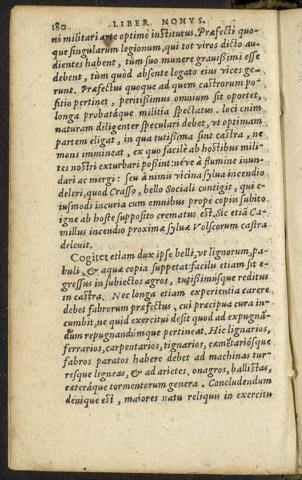 180 LIBER NONVS.
ni militari arte optime institutus. Præfecti quo-
que singularum legionum, qui tot viros dicto au-
dientes habent, tum suo munere grauissimi esse
debent, tùm quod absente legato eius vices ge-
runt. Præfectus quoque ad quem castrorum po-
sitio pertinet, peritissimus omnium sit oportet,
longa probatáque militia spectatus. loci enim
naturam diligenter speculari debet, vt optimam
partem eligat, in qua tutissima sint castra, ne
mons immineat, ex quo facilè ab hostibus mili-
tes nostri exturbari possint: néve à flumine inun-
dari ac mergi: seu à nimis vicina sylua incendio
deleri, quod Crasso, bello Sociali contigit, qui e-
iusmodi incuria cum omnibus prope copiis subito
igne ab hoste supposito crematus est. Sic etiã Ca-
millus incendio proximæ syluæ Volscorum castra
deleuit.
Cogitet etiam dux ipse belli, vt lignorum, pa-
buli, & aquæ copia suppetat: facilis etiam sit e-
gressus in subiectos agros, tutissimúsque reditus
in castra. Nec longa etiam experientia carere
debet fabrorum præfectus, cui præcipua cura in-
cumbit, ne quid exercitui desit quod ad expugnã-
dum repugnandúmque pertineat. Hic lignarios,
ferrarios, carpentarios, tignarios, cæmẽtariósque
fabros paratos habere debet ad machinas tur-
résque ligneas, & ad arietes, onagros, ballistas,
cæteráque tormentorum genera. Concludendum
denique est, maiores natu reliquis in exercitu